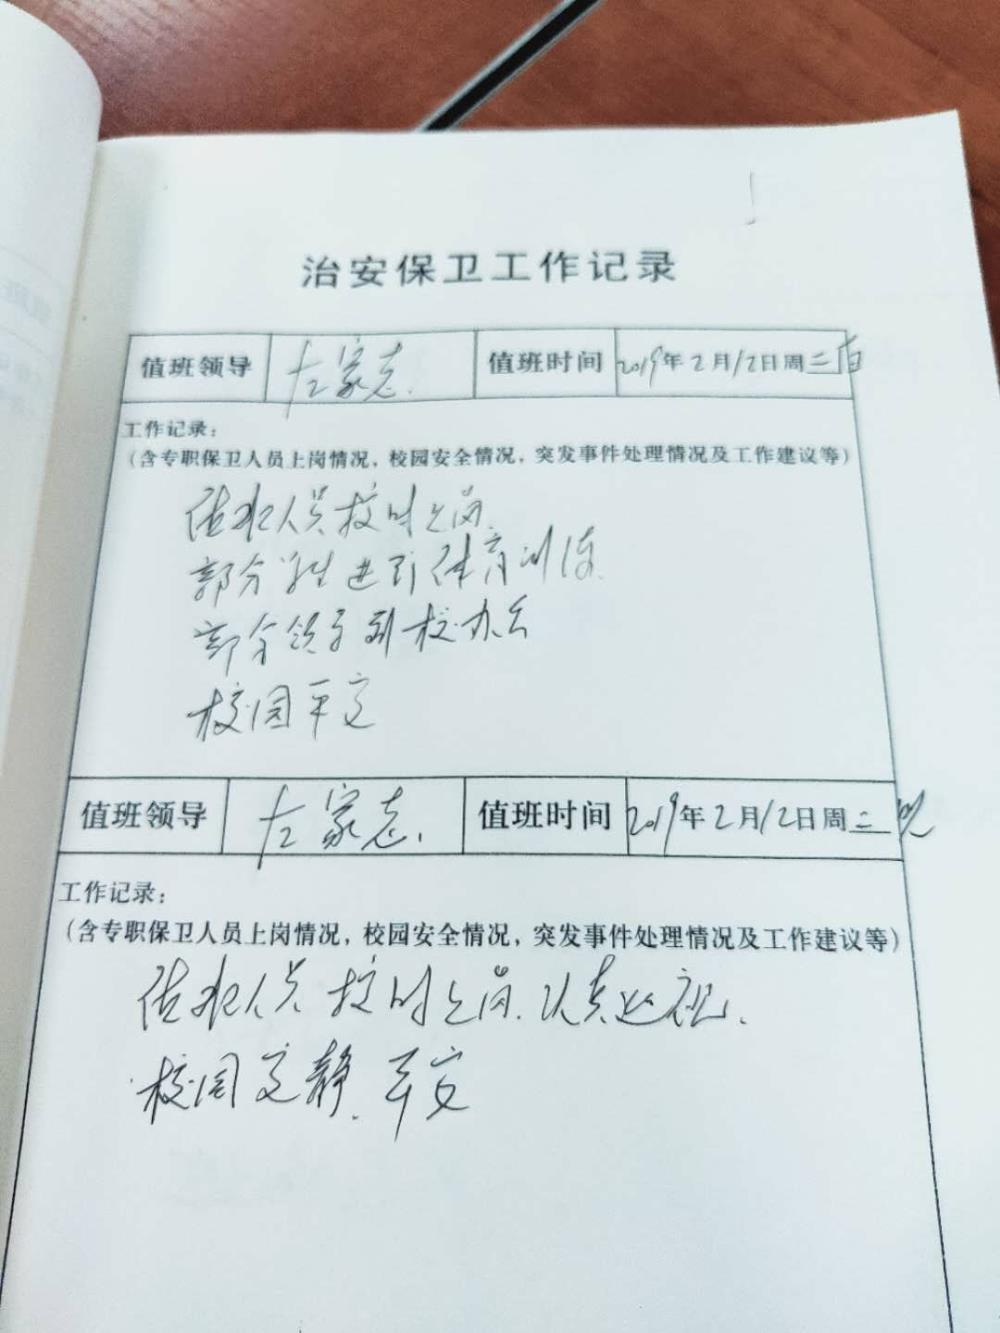 治安保卫工作记录
值班领导 左家志. 值班时间 2019年2月12日周二白
工作记录:
(含专职保卫人员上岗情况, 校园安全情况, 突发事件处理情况及工作建议等)
值班人员按时上岗.
部分学生进行体育训练.
部分领导到校办公
校园平安
值班领导 左家志. 值班时间 2019年2月12日周二晚
工作记录:
(含专职保卫人员上岗情况, 校园安全情况, 突发事件处理情况及工作建议等)
值班人员按时上岗. 认真巡视.
校园安静. 平安